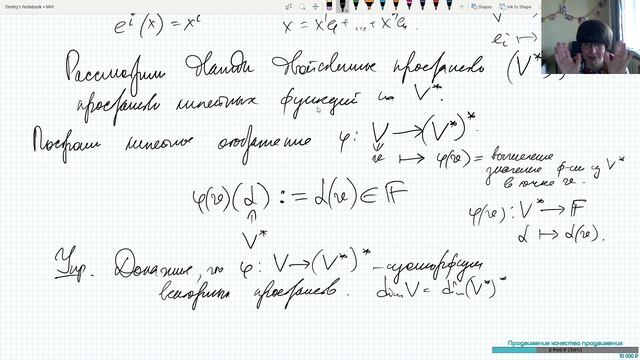 Dmitry's Notebook • MVI
Shapes
Ink to Shape
eⁱ(x) = xⁱ
x = x¹e₁ + ... + xⁿeₙ.
V
eᵢ ↦
Рассмотрим дважды двойственное пространство (V*)
пространство линейных функций на V*.
Построим линейное отображение φ: V → (V*)*.
v ↦ φ(v) = вычисление
значения ф-ии из V*
в точке v.
φ(v)(α) := α(v) ∈ 𝔽
V*
φ(v): V* → 𝔽
α ↦ α(v).
Упр. Докажите, что φ: V → (V*)* – изоморфизм
векторных пространств. dim V = dim (V*)*
Продвижение качества продвижения
2 960 ₽ (30%)
10 000 ₽